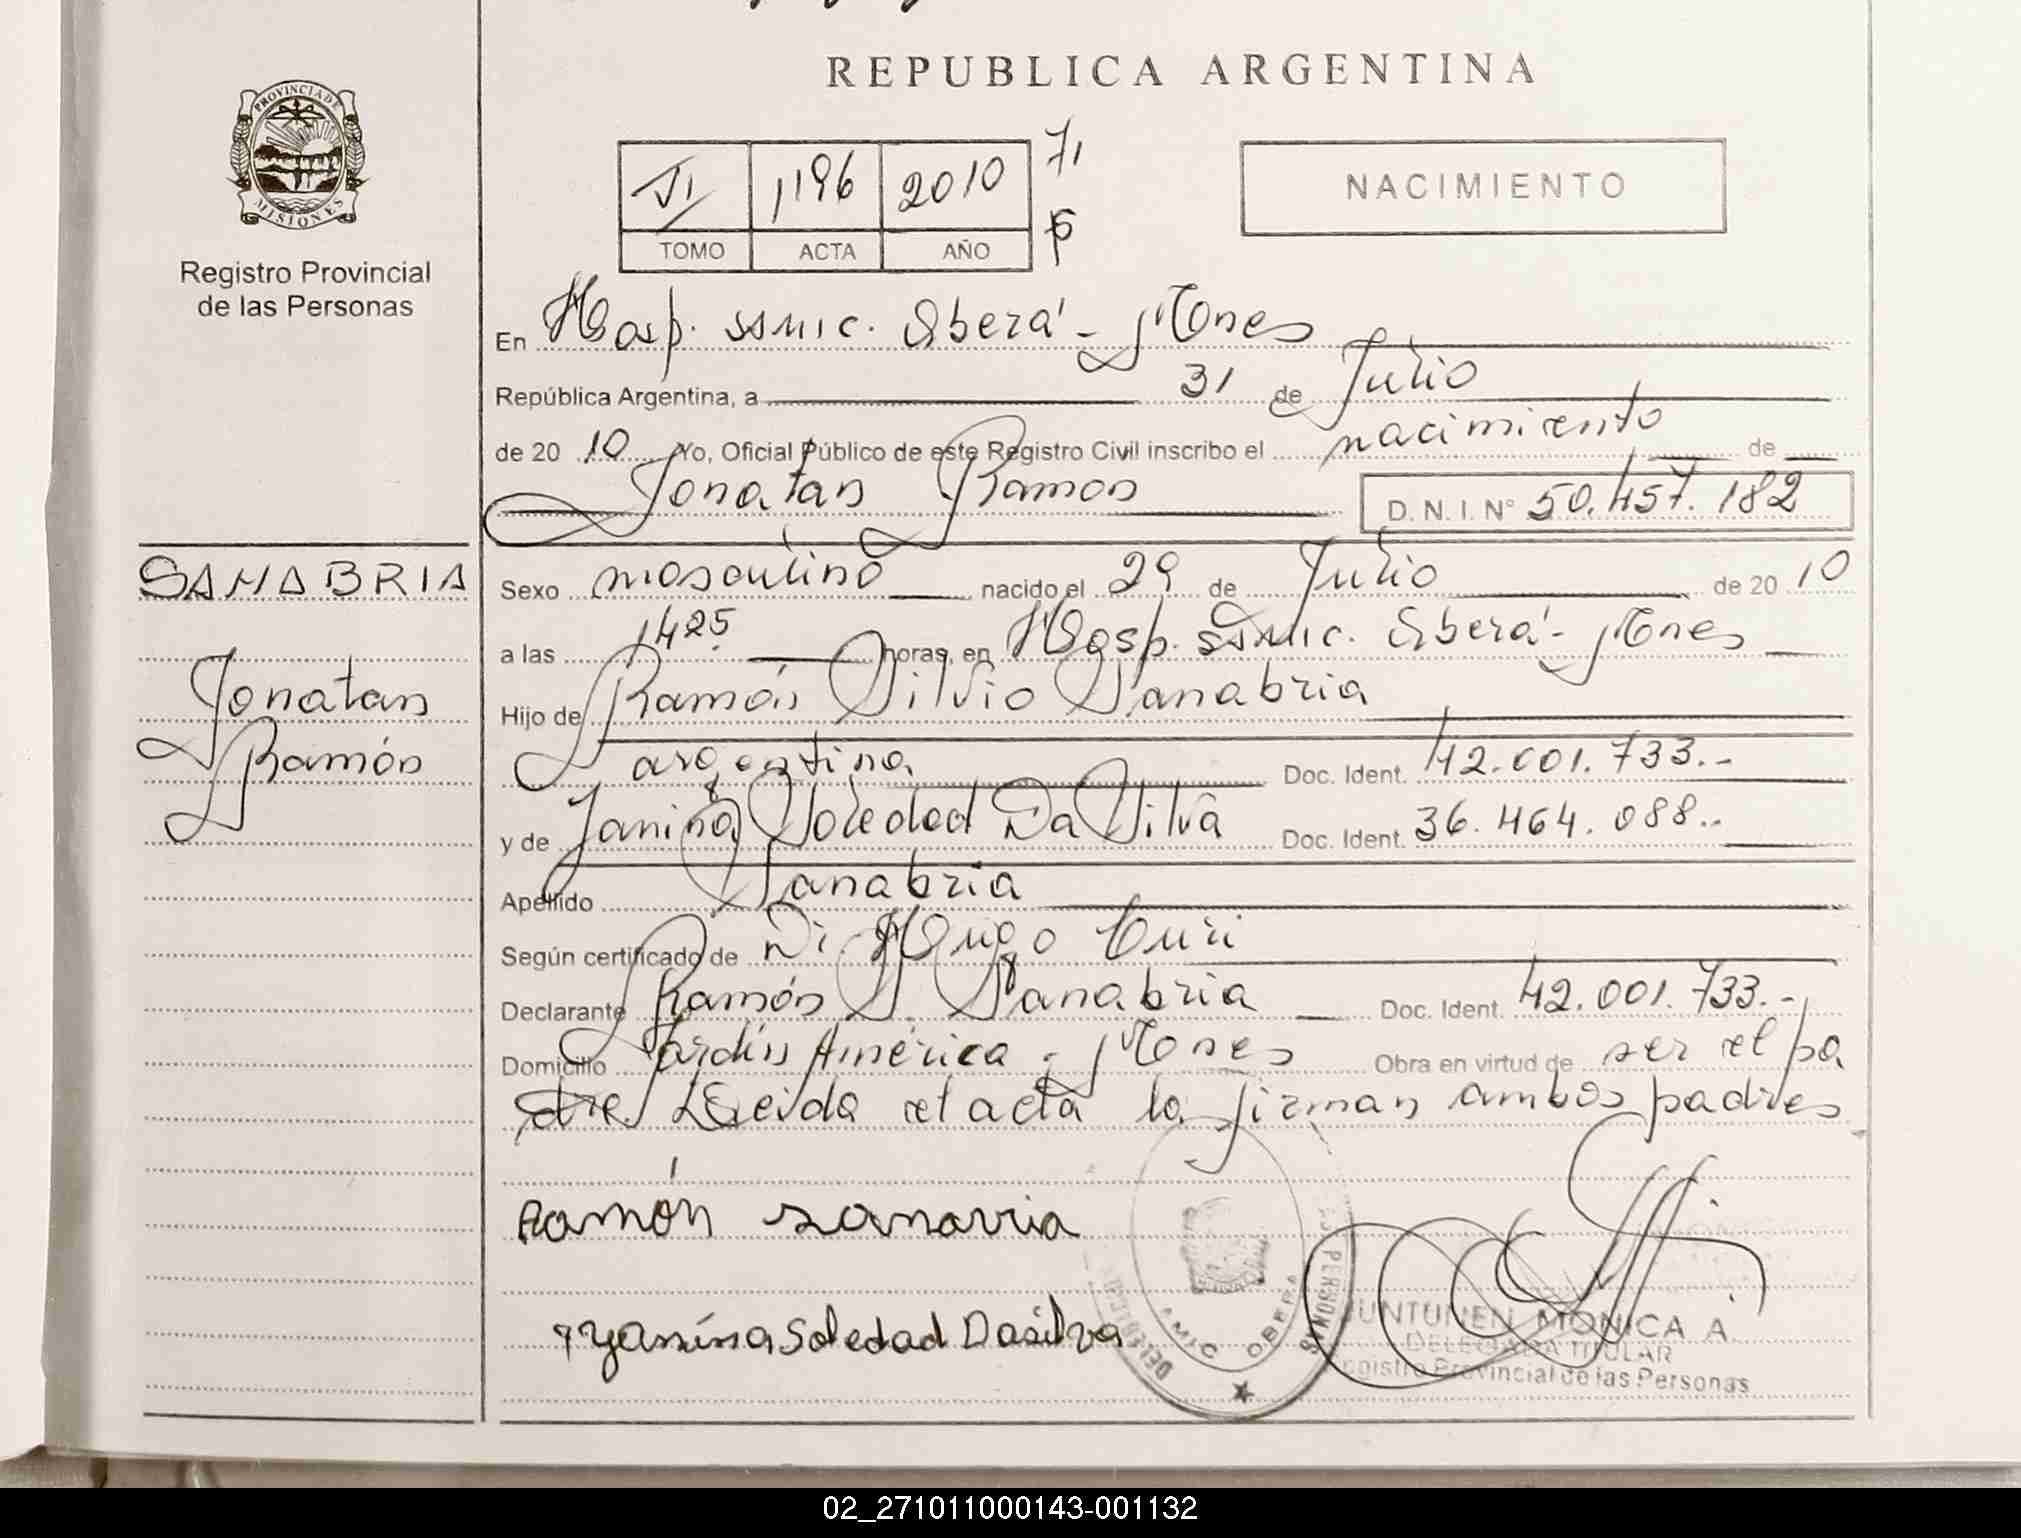 REPUBLICA ARGENTINA
PROVINCIA DE
MISIONES
Registro Provincial
de las Personas
VI 1196 2010 71
TOMO ACTA AÑO
NACIMIENTO
En Hosp. SSMIC. Oberá - Mones
República Argentina, a 31 de Julio
de 20 10 Yo, Oficial Público de este Registro Civil inscribo el nacimiento de
Jonatan Ramon D. N. I. N° 50.457.182
SANABRIA
Sexo masculino nacido el 29 de Julio de 20 10
a las 1425 horas, en Hosp. SSMIC. Oberá - Mones
Jonatan
Hijo de Ramón Silvio Sanabria
Ramón
argentina Doc. Ident. 42.001.733.-
y de Janina Soledad Da Silva Doc. Ident. 36.464.088..
Apellido Sanabria
Según certificado de Di Hugo Curi
Declarante Ramón S. Sanabria Doc. Ident. 42.001.733.-
Domicilio Jardín América - Mones Obra en virtud de ser el pa
dre Leida el acta la firman ambos padres
Ramón sanavria
yanina Soledad Dasilva
PERSONAS
OBERA
JUNTUNEN MONICA A.
DELEGADA TITULAR
Registro Provincial de las Personas
02_271011000143-001132